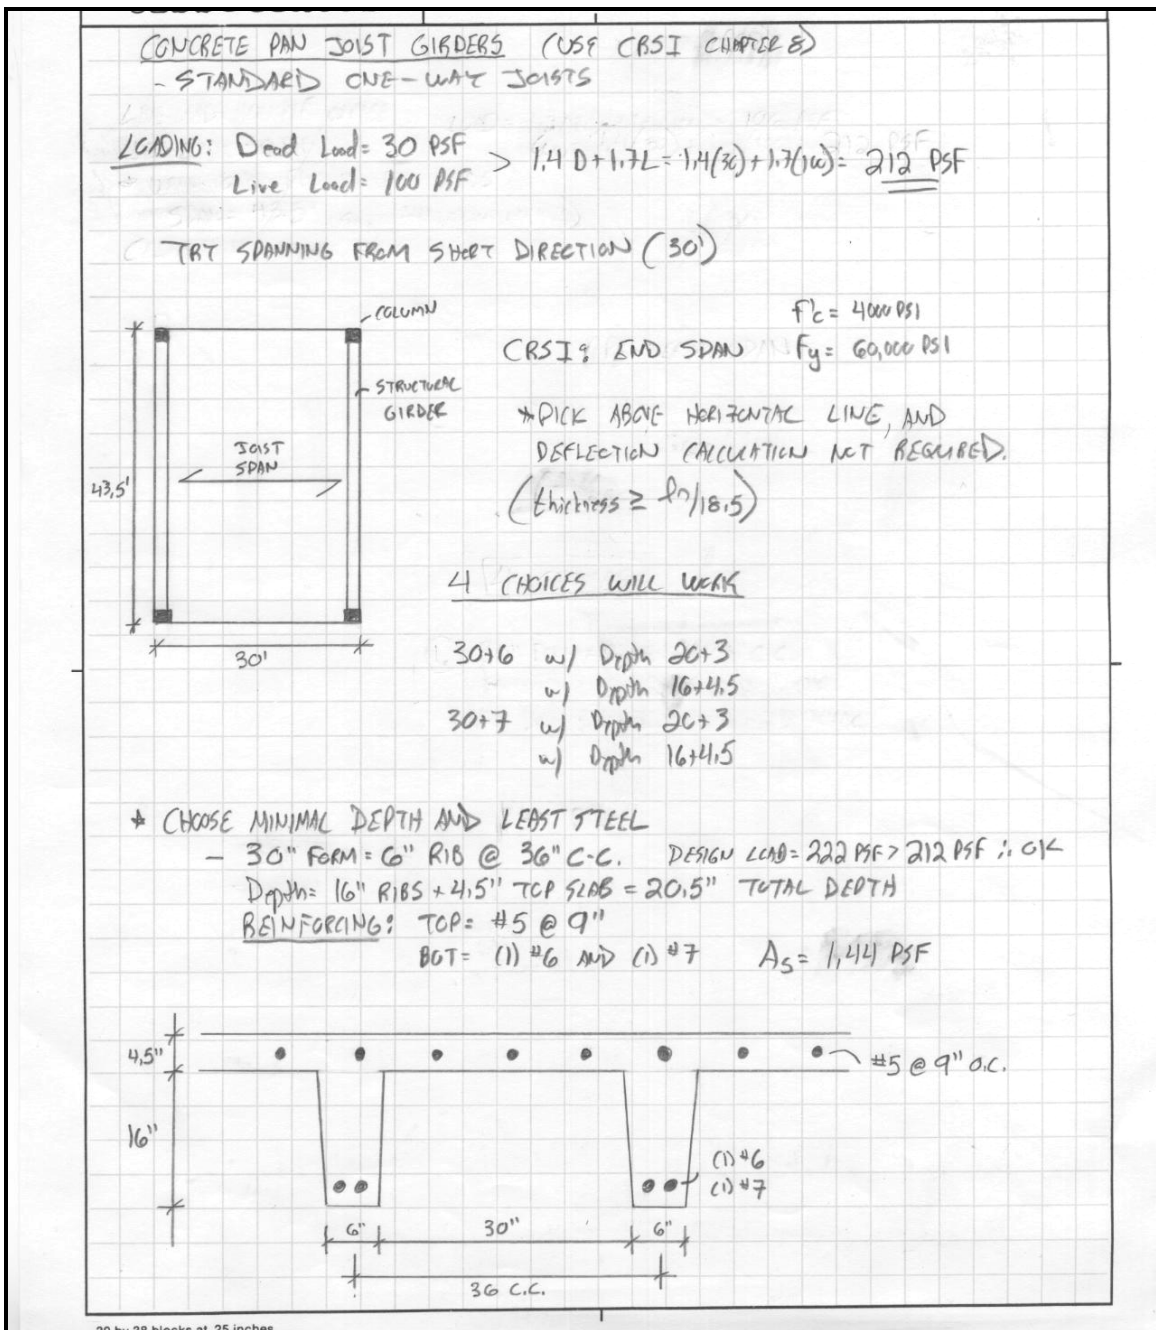 CONCRETE PAN JOIST GIRDERS (USE CRSI CHAPTER 8)
- STANDARD ONE-WAY JOISTS
LOADING: Dead Load = 30 PSF
Live Load = 100 PSF
> 1.4 D + 1.7L = 1.4(30) + 1.7(100) = 212 PSF
TRY SPANNING FROM SHORT DIRECTION (30')
COLUMN
STRUCTURAL
GIRDER
JOIST
SPAN
43.5'
30'
f'c = 4000 PSI
CRSI: END SPAN Fy = 60,000 PSI
*PICK ABOVE HORIZONTAL LINE, AND
DEFLECTION CALCULATION NOT REQUIRED.
(thickness ≥ ln/18.5)
4 CHOICES WILL WORK
30+6 w/ Depth 20+3
w/ Depth 16+4.5
30+7 w/ Depth 20+3
w/ Depth 16+4.5
* CHOOSE MINIMAL DEPTH AND LEAST STEEL
- 30" FORM = 6" RIB @ 36" C-C. DESIGN LOAD = 222 PSF > 212 PSF ∴ OK
Depth = 16" RIBS + 4.5" TOP SLAB = 20.5" TOTAL DEPTH
REINFORCING: TOP = #5 @ 9"
BOT = (1) #6 AND (1) #7 As = 1.44 PSF
4.5"
#5 @ 9" O.C.
16"
(1) #6
(1) #7
6" 30" 6"
36 C.C.